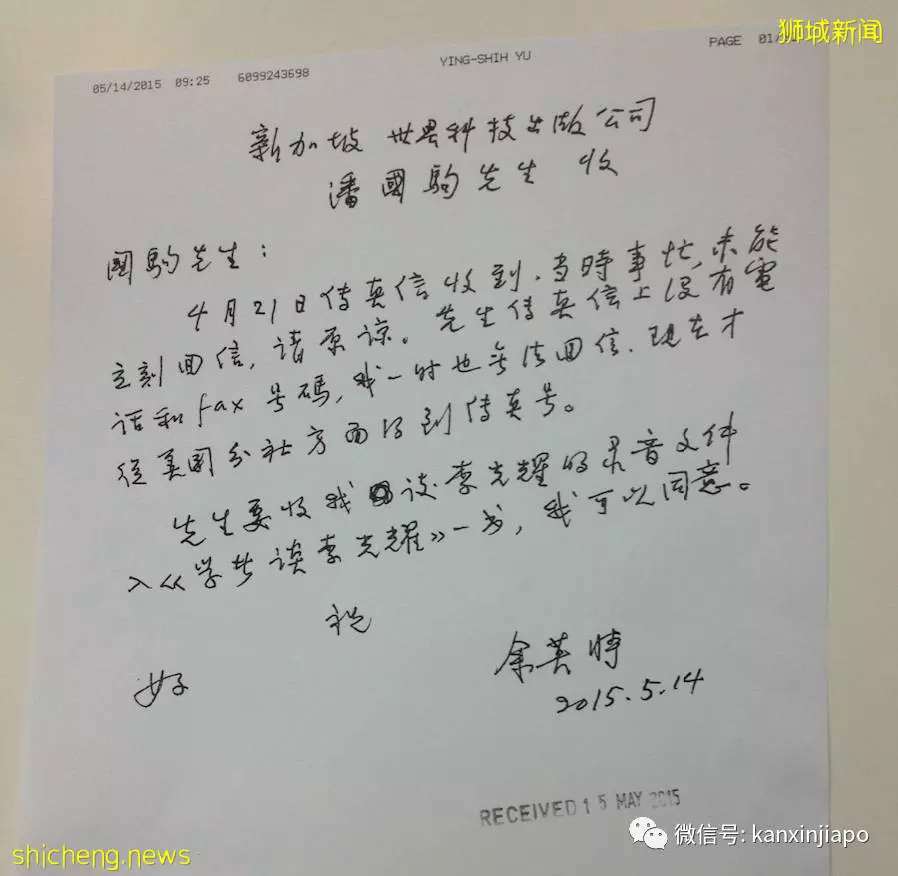 狮城新闻
05/14/2015 09:25 6099243698 YING-SHIH YU PAGE 01/
新加坡 世界科技出版公司
潘國駒先生 收
國駒先生：
4月21日传真信收到，当時事忙，未能
立刻回信，请原谅。先生传真信上没有電
话和fax号碼，我一时也无法回信，现在才
從美国分社方面得到传真号。
先生要收我谈李光耀的录音文件
入《学者谈李光耀》一书，我可以同意。
祝
好
余英時
2015.5.14
RECEIVED 15 MAY 2015
微信号: kanxinjiapo
shicheng.news